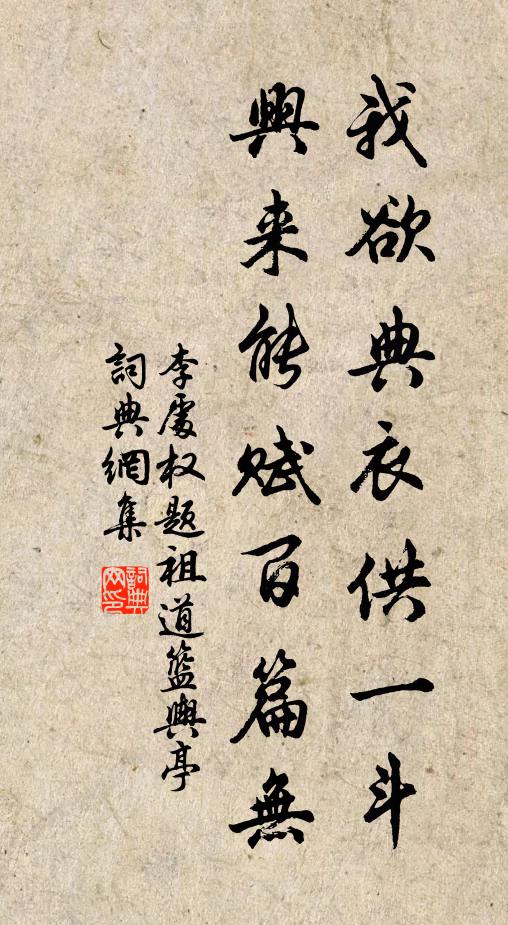 我欲典衣供一斗
興来能赋百篇無
李處权题祖道籃輿亭
詞典網集
詞典